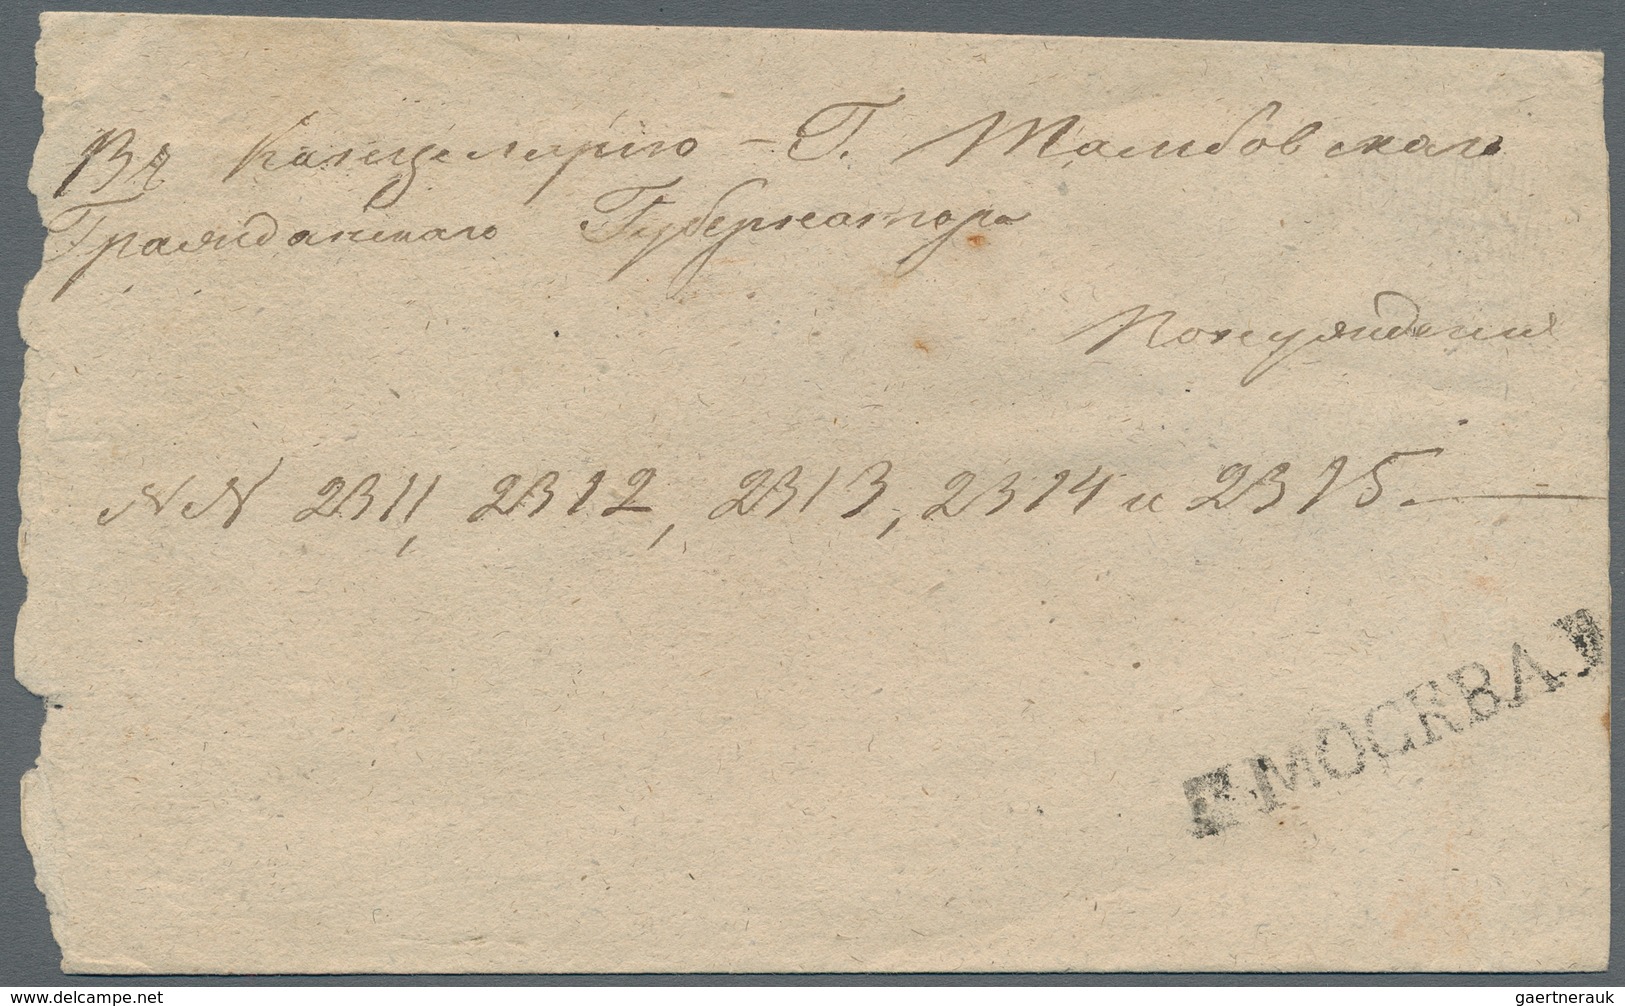 Въ Канцелярію – Г. Тамбовскаго
Гражданскаго Губернатора
По нуждение
NN 2311, 2312, 2313, 2314 и 2315.
МОСКВА
delcampe.net
gaertnerauk